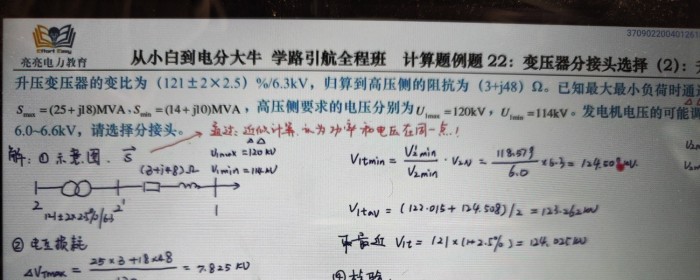 370902200401261
Effort Easy
亮亮电力教育
从小白到电分大牛 学路引航全程班 计算题例题 22：变压器分接头选择（2）：
升压变压器的变比为（121±2×2.5）%/6.3kV，归算到高压侧的阻抗为（3+j48）Ω。已知最大最小负荷时通
Smax=(25+j18)MVA，Smin=(14+j10)MVA，高压侧要求的电压分别为U1max=120kV，U1min=114kV。发电机电压的可能调
6.0~6.6kV，请选择分接头。
近似计算，认为功率和电压在同一点！
解：①示意图. S
(3+j48)Ω
V1max=120kV
V1min=114kV
2 2' 1
121±2×2.5%/6.3
②电压损耗
ΔVTmax = 25×3+18×48 / 120 = 7.825kV
V1tmin = V'2min / V2min · V2N = 118.579 / 6.0 × 6.3 = 124.508kV.
V1tav = (122.015+124.508)/2 = 123.262kV
最近 V1t = 121×(1+2.5%) = 124.025kV
④校验.